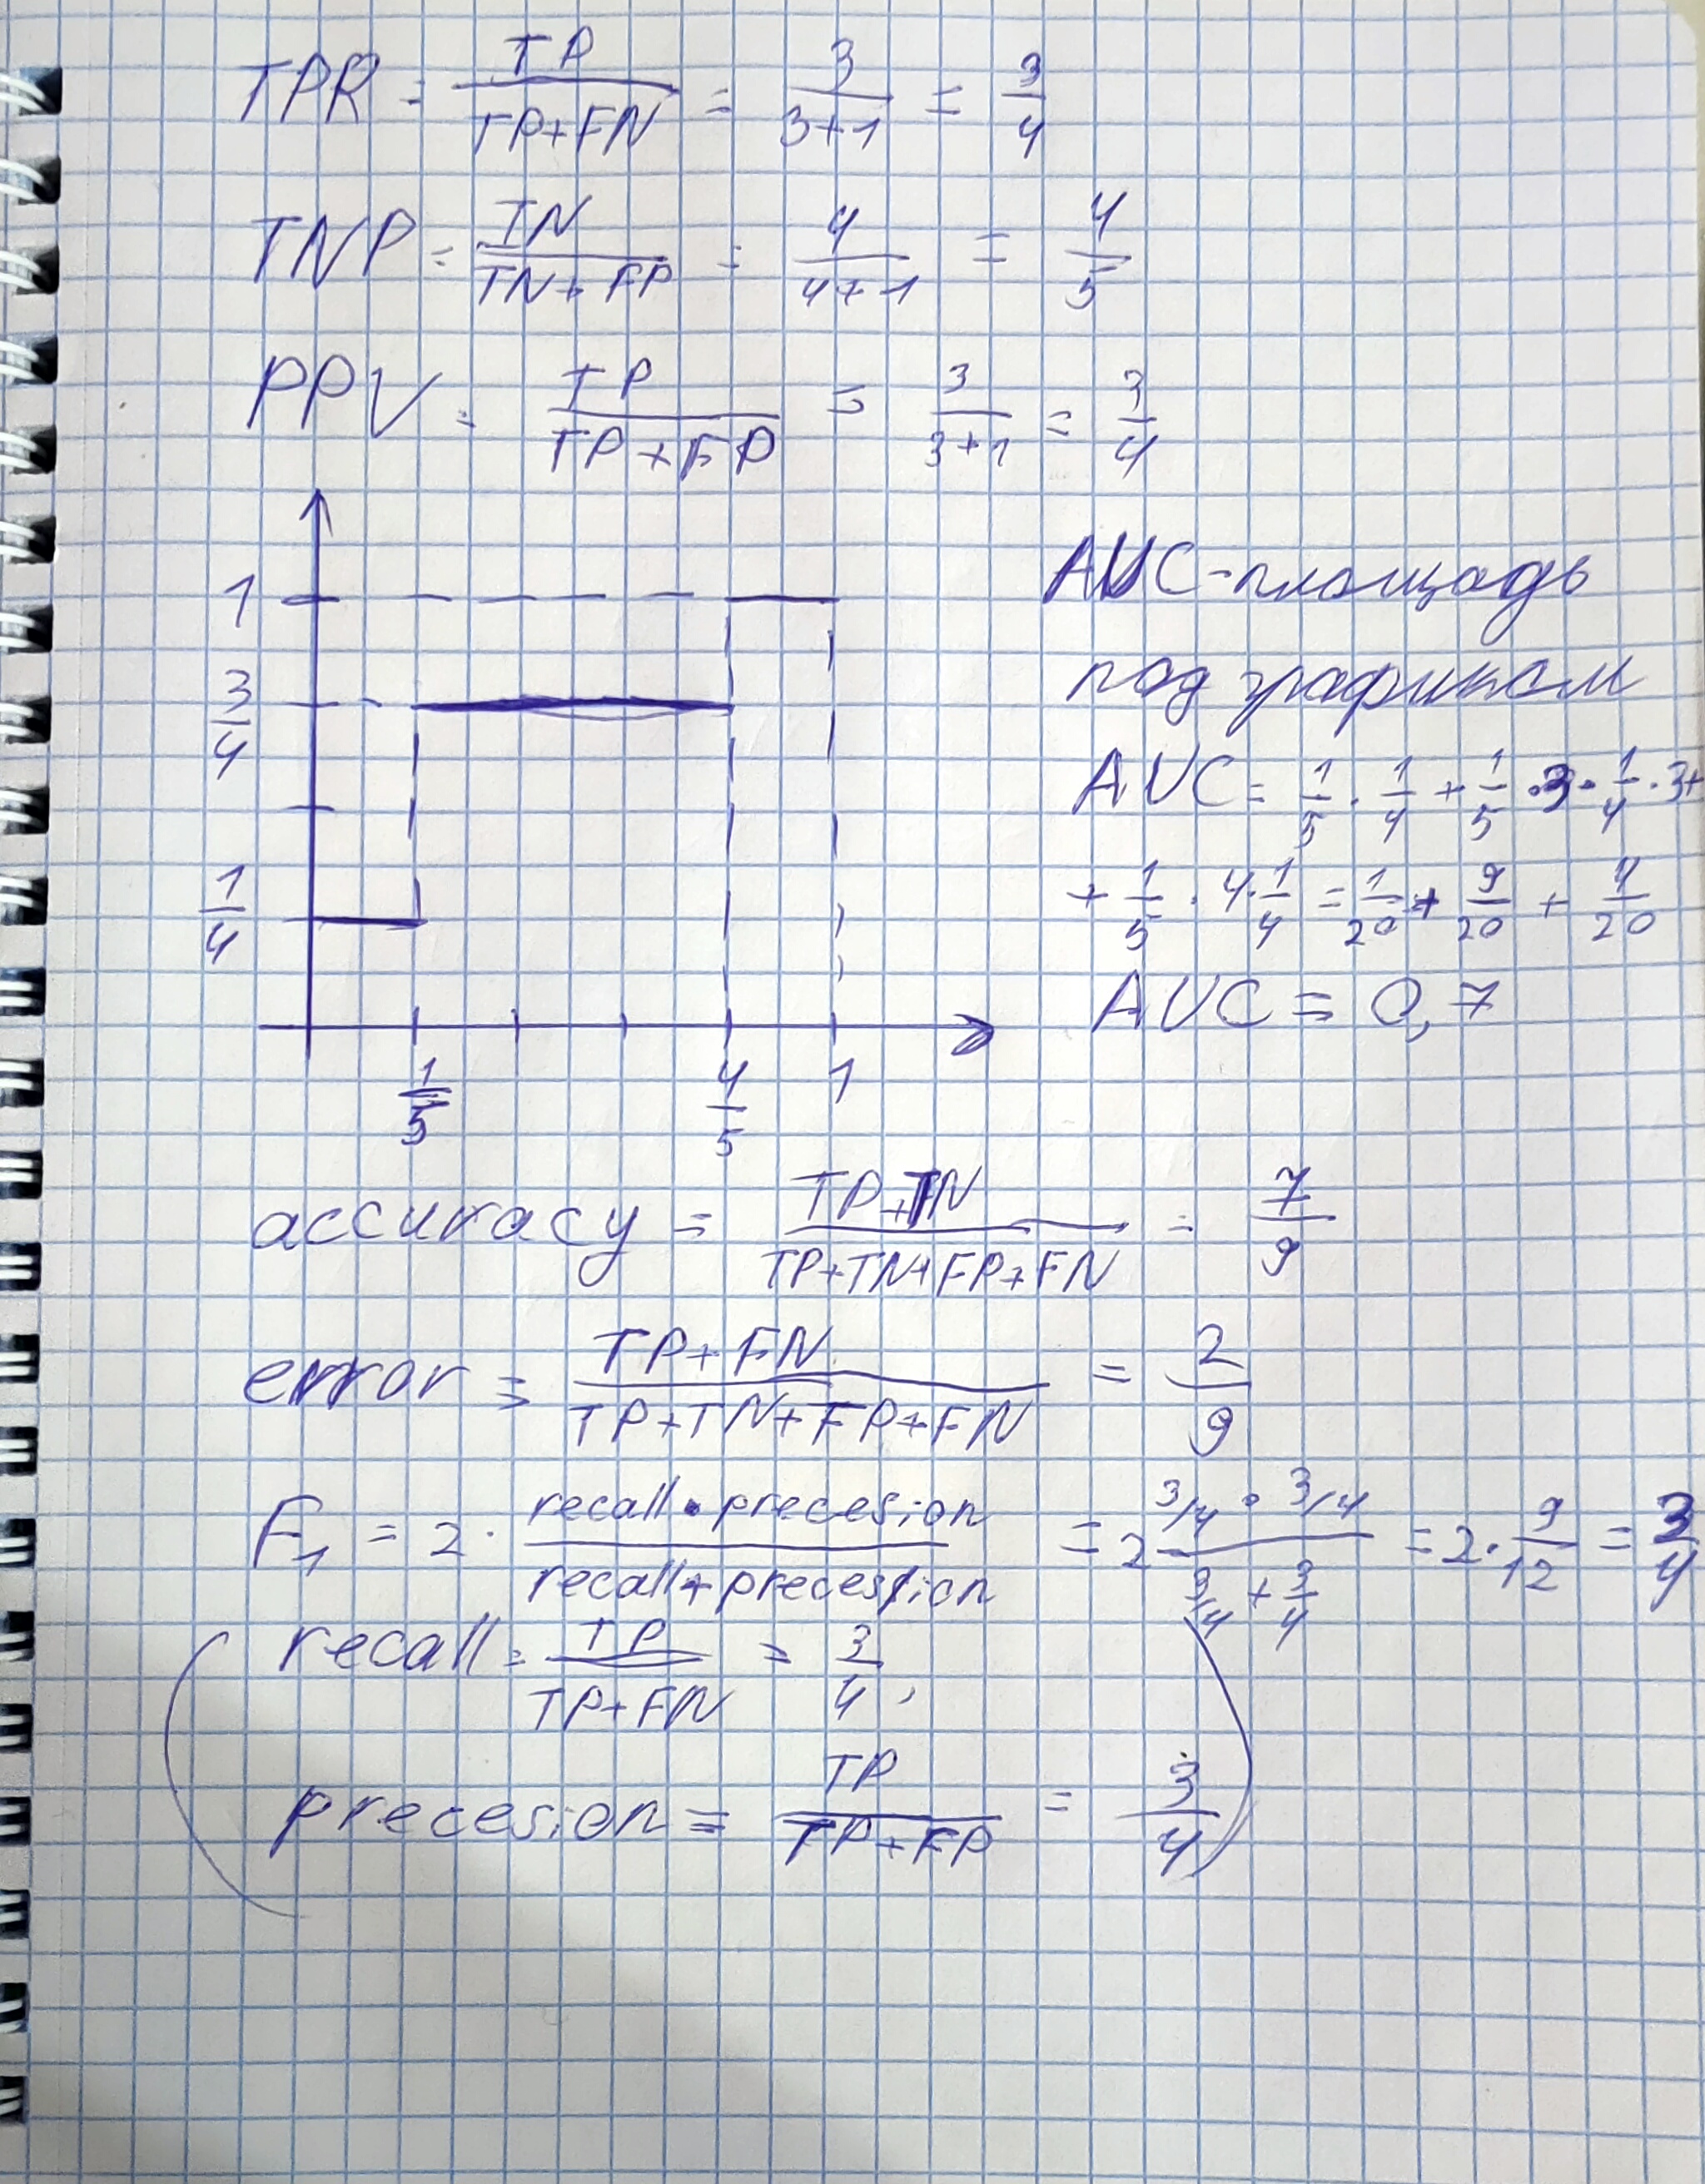 TPR = TP / (TP+FN) = 3 / (3+1) = 3/4
TNP = TN / (TN+FP) = 4 / (4+1) = 4/5
PPV = TP / (TP+FP) = 3 / (3+1) = 3/4
1
3/4
1/4
1/5 4/5 1
AUC - площадь
под графиком
AUC = 1/5 · 1/4 + 1/5 · 3 · 1/4 · 3 +
+ 1/5 · 4 · 1/4 = 1/20 + 9/20 + 4/20
AUC = 0,7
accuracy = (TP+TN) / (TP+TN+FP+FN) = 7/9
error = (TP+FN) / (TP+TN+FP+FN) = 2/9
F₁ = 2 · (recall · precesion) / (recall + precession) = 2 (3/4 · 3/4) / (3/4 + 3/4) = 2 · 9/12 = 3/4
(recall = TP / (TP+FN) = 3/4,
precesion = TP / (TP+FP) = 3/4)